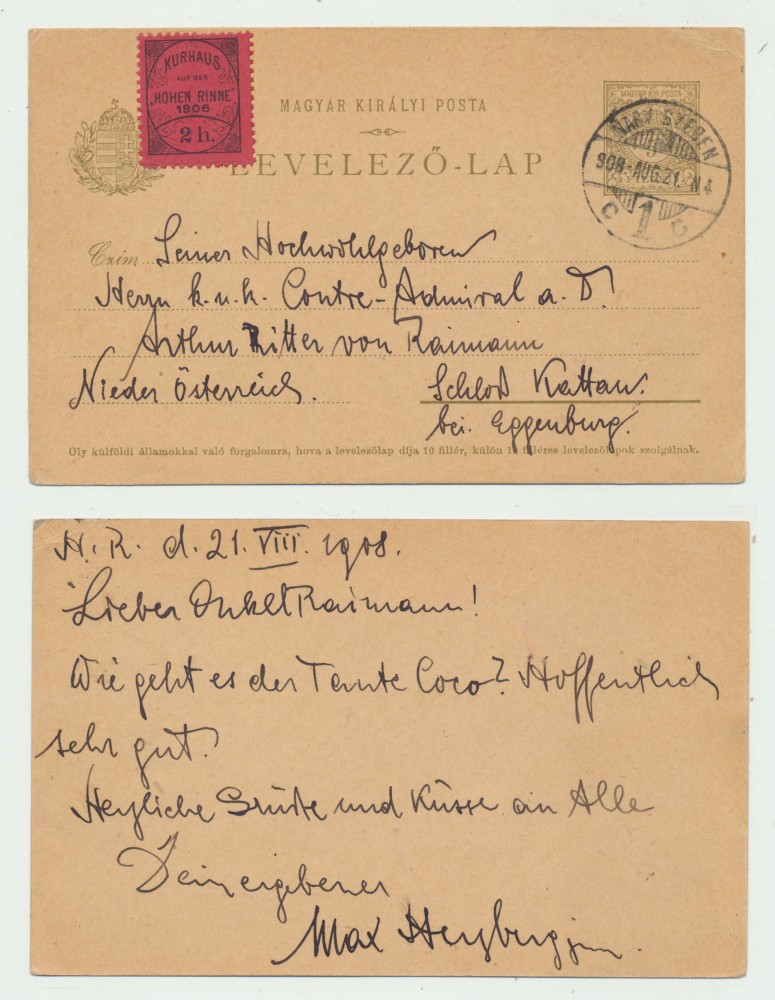 KURHAUS
AUF DER
"HOHEN RINNE"
1906
2 h.
MAGYAR KIRÁLYI POSTA
LEVELEZŐ-LAP
MAGYAR KIR. POSTA
NAGY SZEBEN
908 AUG. 21. N4
C 1 C
Czim Seiner Hochwohlgeboren
Herrn k. u. k. Contre-Admiral a. D.
Arthur Ritter von Raimann
Nieder Österreich. Schloß Kattau.
bei Eggenburg.
Oly külföldi államokkal való forgalomra, hova a levelezőlap díja 10 fillér, külön 10 filléres levelezőlapok szolgálnak.
H. R. d. 21. VIII. 1908.
Lieber Onkel Raimann!
Wie geht es der Tante Coco? Hoffentlich
sehr gut.
Herzliche Grüße und Küsse an Alle
Dein ergebener
Max Herzberg jun.